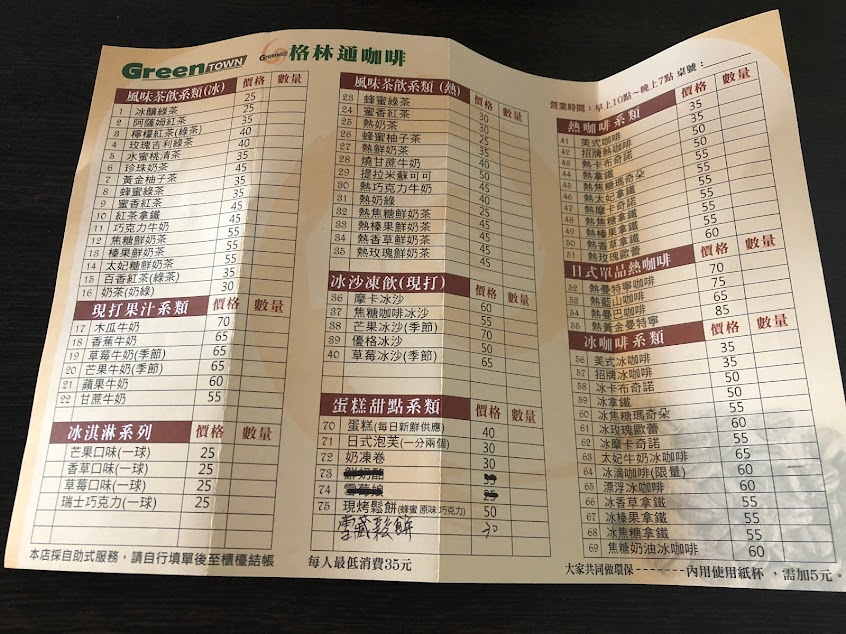 Green TOWN
Green 格林通咖啡
風味茶飲系類(冰) 價格 數量
1 冰釀綠茶 25
2 阿薩姆紅茶 25
3 檸檬紅茶(綠茶) 35
4 玫瑰吉利綠茶 40
5 水蜜桃清茶 40
6 珍珠奶茶 35
7 黃金柚子茶 45
8 蜂蜜綠茶 35
9 蜜香紅茶 35
10 紅茶拿鐵 45
11 巧克力牛奶 45
12 焦糖鮮奶茶 55
13 榛果鮮奶茶 55
14 太妃糖鮮奶茶 55
15 百香紅茶(綠茶) 35
16 奶茶(奶綠) 30
現打果汁系類 價格 數量
17 木瓜牛奶 70
18 香蕉牛奶 65
19 草莓牛奶(季節) 65
20 芒果牛奶(季節) 65
21 蘋果牛奶 60
22 甘蔗牛奶 55
冰淇淋系列 價格 數量
芒果口味(一球) 25
香草口味(一球) 25
草莓口味(一球) 25
瑞士巧克力(一球) 25
本店採自助式服務，請自行填單後至櫃檯結帳
風味茶飲系類(熱) 價格 數量
23 蜂蜜綠茶 30
24 蜜香紅茶 30
25 熱奶茶 30
26 蜂蜜柚子茶 35
27 熱鮮奶茶 35
28 燒甘蔗牛奶 40
29 提拉米蘇可可 50
30 熱巧克力牛奶 40
31 熱奶綠 25
32 熱焦糖鮮奶茶 45
33 熱榛果鮮奶茶 45
34 熱香草鮮奶茶 45
35 熱玫瑰鮮奶茶 45
冰沙凍飲(現打) 價格 數量
36 摩卡冰沙 60
37 焦糖咖啡冰沙 55
38 芒果冰沙(季節) 70
39 優格冰沙 50
40 草莓冰沙(季節) 65
蛋糕甜點系類 價格 數量
70 蛋糕(每日新鮮供應) 40
71 日式泡芙(一分兩個) 30
72 奶凍卷 30
73 鮮奶酪 35
74 雪莓娘 25
75 現烤鬆餅(蜂蜜 原味 巧克力) 50
雪藏穀餅 30
每人最低消費35元
營業時間：早上10點－晚上7點 桌號：
熱咖啡系類 價格 數量
41 美式咖啡 35
42 招牌熱咖啡 35
43 熱卡布奇諾 50
44 熱拿鐵 50
45 熱焦糖瑪奇朵 55
46 熱太妃拿鐵 55
47 熱摩卡奇諾 55
48 熱焦糖拿鐵 55
49 熱榛果拿鐵 55
50 熱香草拿鐵 55
51 熱玫瑰歐蕾 60
日式單品熱咖啡 價格 數量
52 熱曼特寧咖啡 70
53 熱藍山咖啡 75
54 熱曼巴咖啡 65
55 熱黃金曼特寧 85
冰咖啡系類 價格 數量
56 美式冰咖啡 35
57 招牌冰咖啡 35
58 冰卡布奇諾 50
59 冰拿鐵 50
60 冰焦糖瑪奇朵 55
61 冰玫瑰歐蕾 60
62 冰摩卡奇諾 55
63 太妃牛奶冰咖啡 60
64 冰滴咖啡(限量) 60
65 漂浮冰咖啡 60
66 冰香草拿鐵 55
67 冰榛果拿鐵 55
68 冰焦糖拿鐵 55
69 焦糖奶油冰咖啡 60
大家共同做環保--------內用使用紙杯，需加5元。